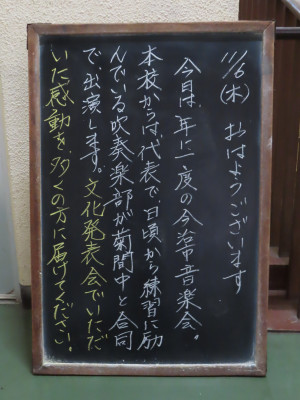 11/6(木) おはようございます
今日は、年に一度の今治市音楽会。
本校からは、代表で、日頃から練習に励
んでいる吹奏楽部が菊間中と合同
で出演します。文化発表会でいただ
いた感動を、多くの方に届けてください。